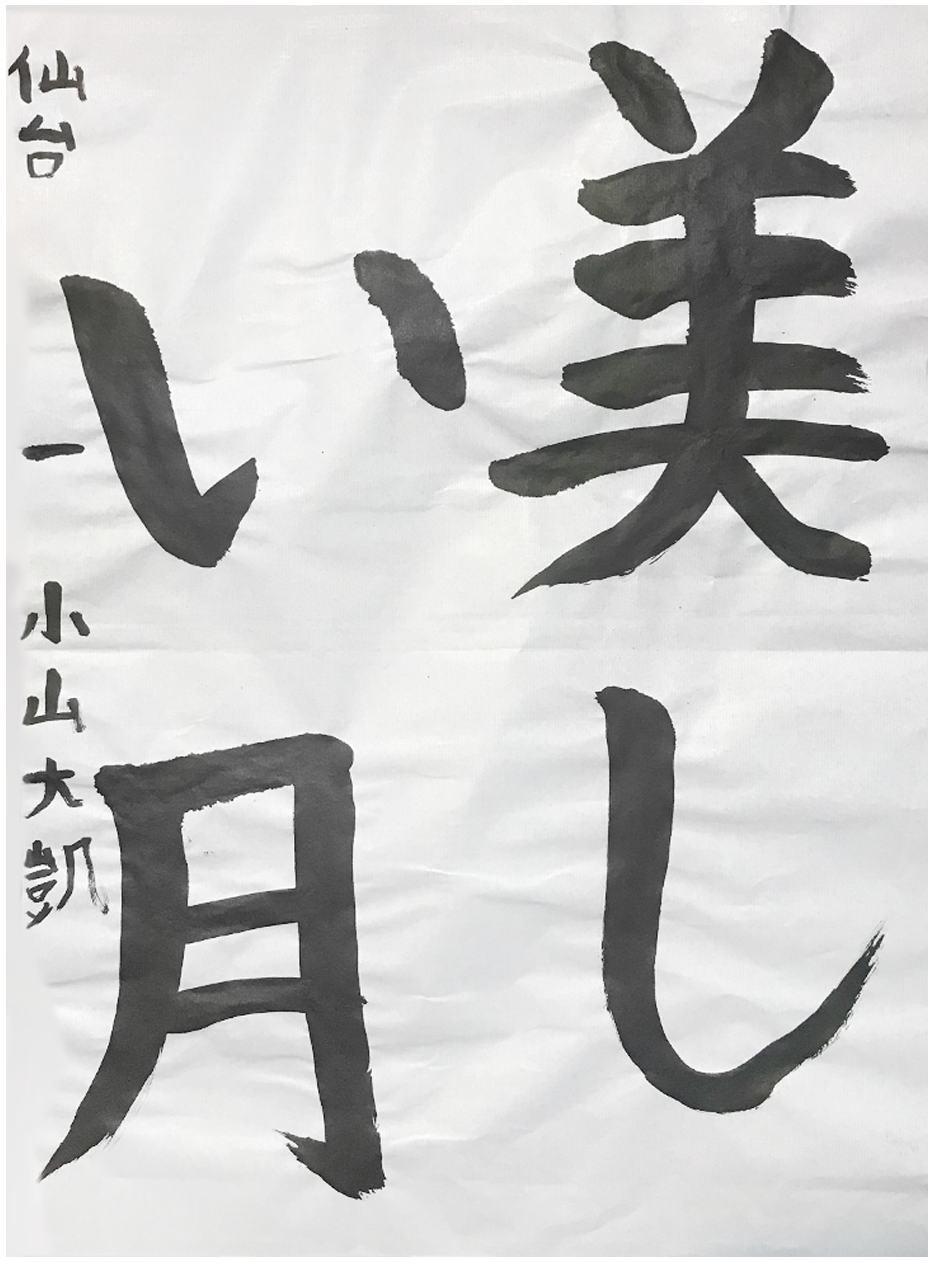 美し
い月
仙台 一 小山大凱